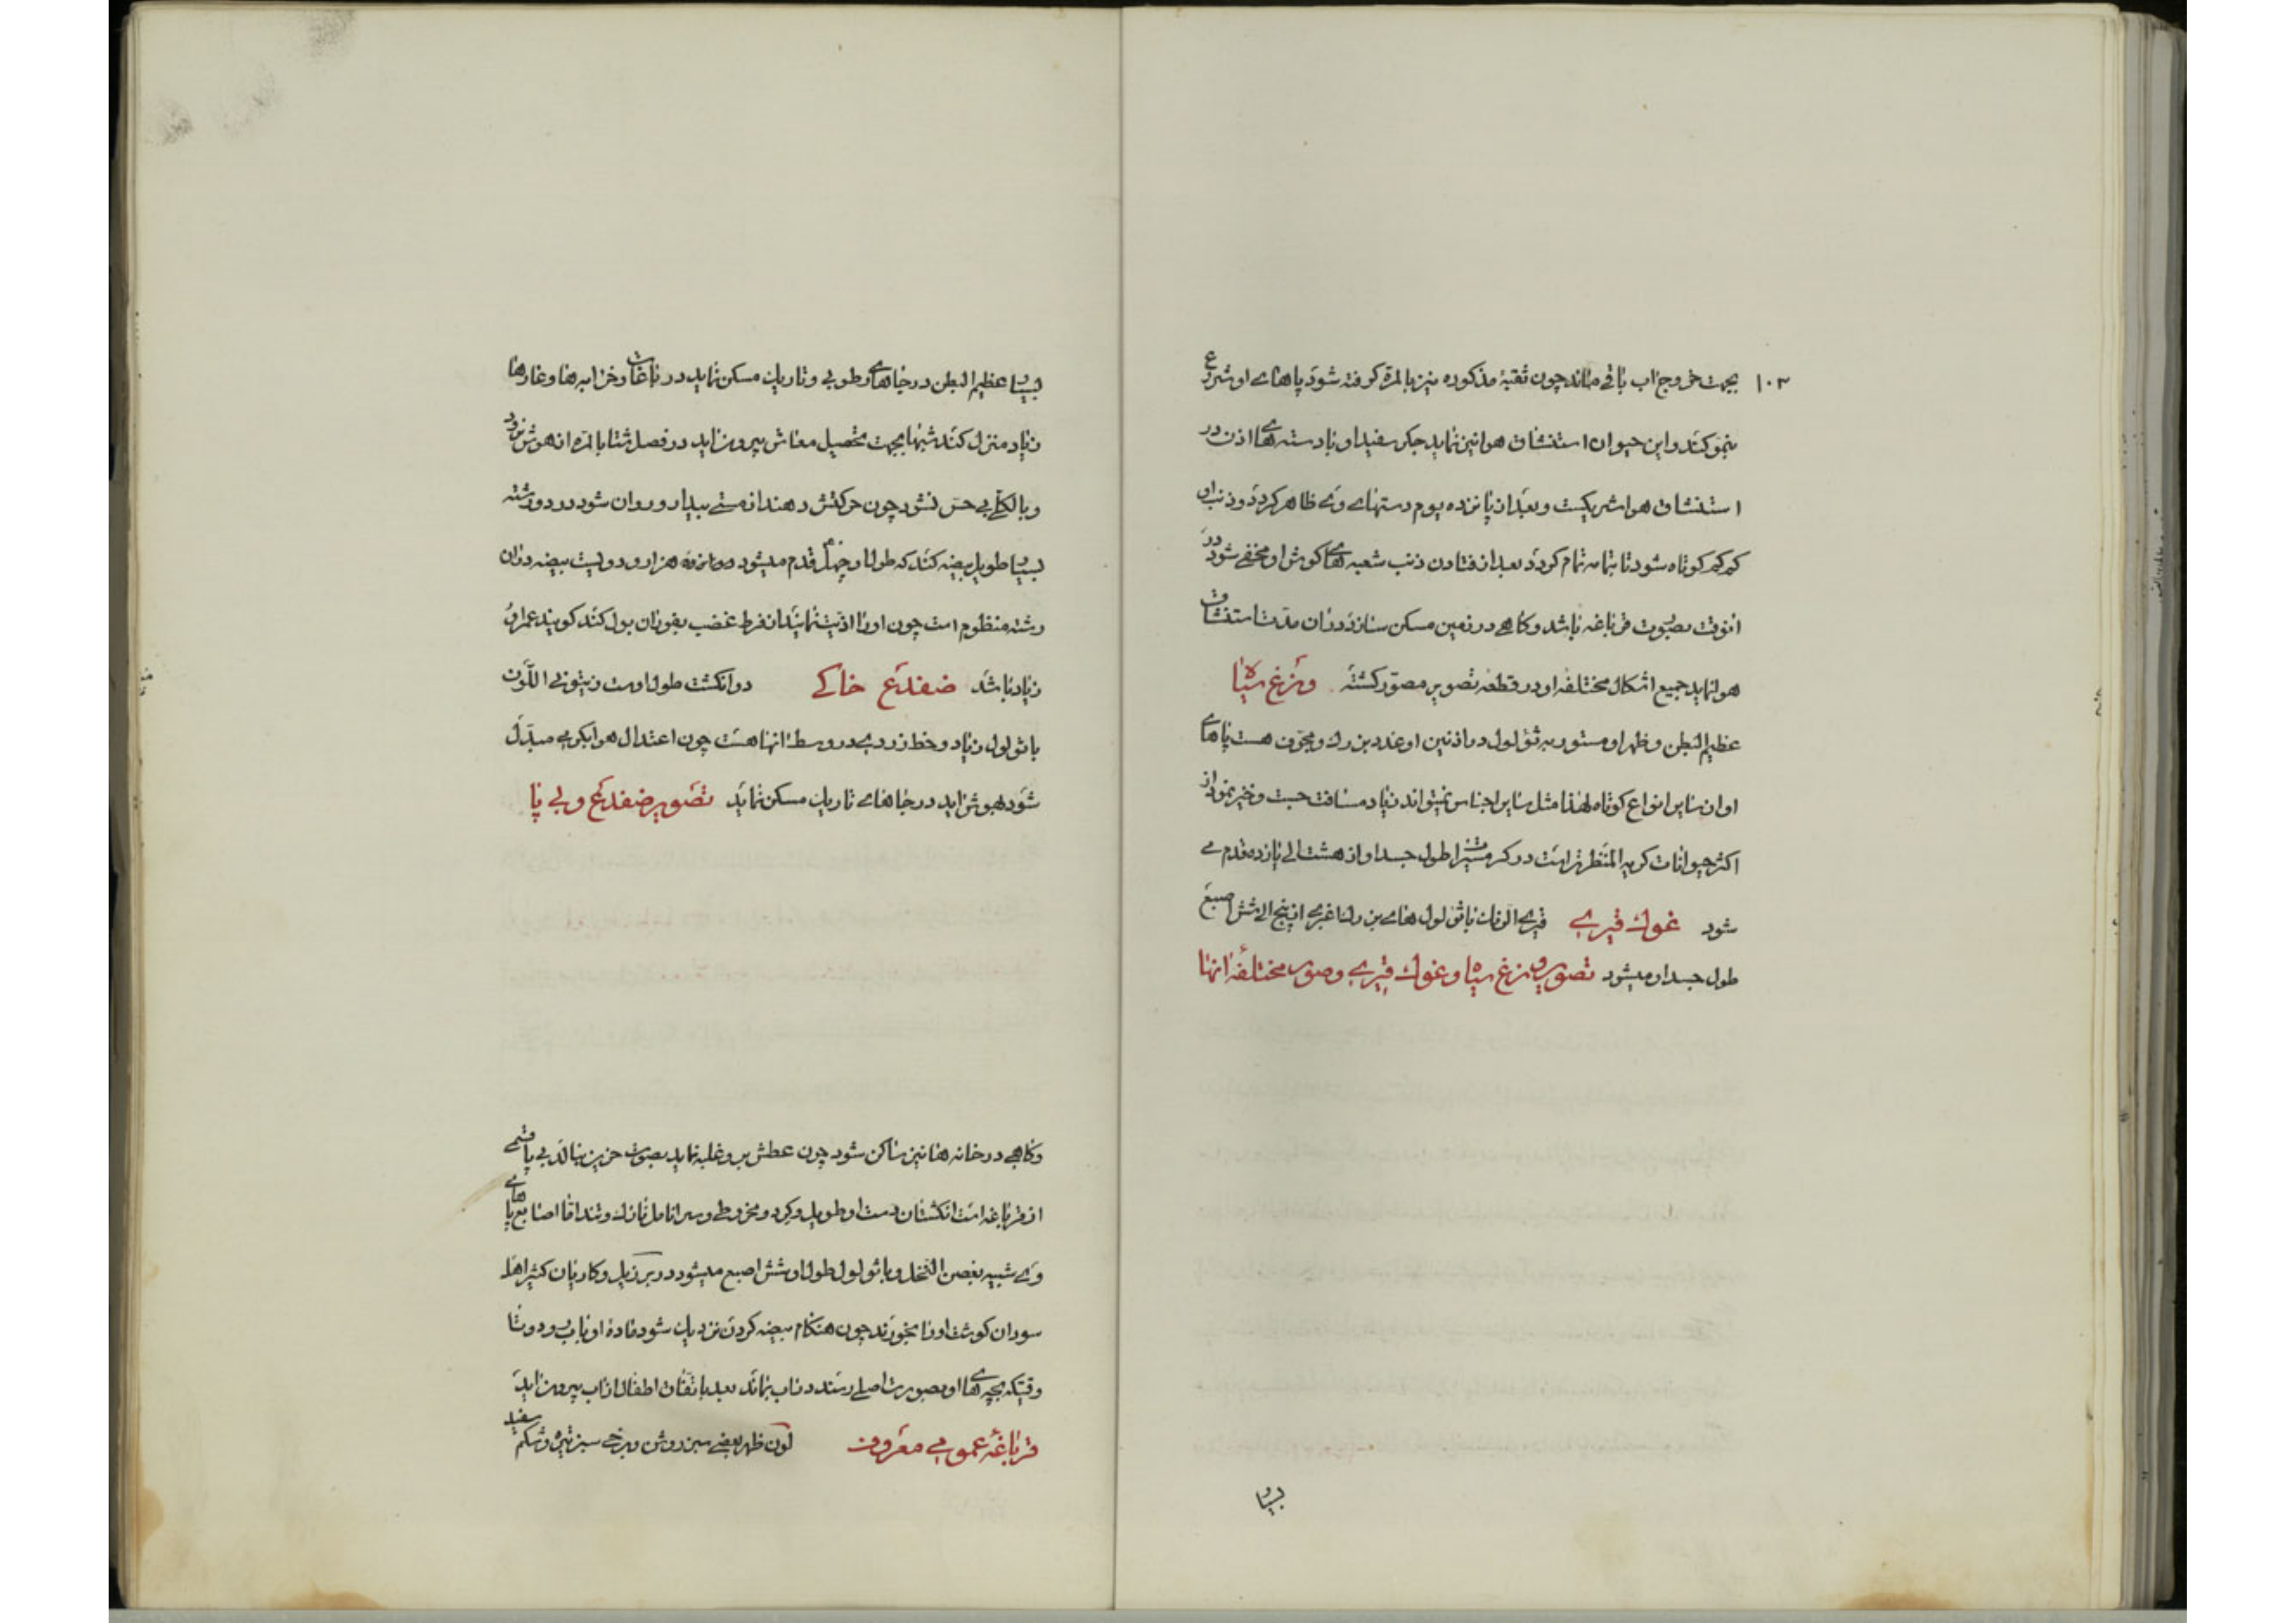 ۱۰۳
بجهت خروج آب باقی ماند چون ثقبهٔ مذکوره نیز بالمره کرفته شود پاهای او شروع
بنمو کند و این حیوان استنشاق هوا نیز نماید جکر سفید او با دسته های اذن در
استنشاق هوا شریکست و بعد از پانزده یوم دستهای وی ظاهر کردد و ذنب او
کم کم کوتاه شود تا بتمامه تمام کردد بعد از فتادن ذنب شعبه های کوش او مخفی شود در
انوقت بصورت قرباغه باشد و کاهی در زمین مسکن سازد در ان مدت استنشاق
هوا نماید جمیع اشکال مختلفه او در قطعه تصویر مصور کشته وزغ سیاه
عظیم البطن و ظهر او مستور به ثؤلول در اذنین او غدد بزرک و مجوف هست پاهای
او از سایر انواع کوتاه لهذا مثل سایر اجناس نمیتواند زیاد مسافت جست و خیز نمود از
اکثر حیوانات کریه المنظر تر است در کرمسیر طول جسد او از هشت الی یازده قدم می
شود غوک قیری قیری الوان با ثؤلول های بزرک اغبری از پنج الی شش اصبع
طول جسد او میشود تصویر وزغ سیاه و غوک قیری و صور مختلفهٔ آنها
بسیار
بسیار عظیم البطن در جاهای رطوبی و تاریک مسکن نماید در باغات و خرابه ها و غارها
زیاد منزل کند شبها بجهت تحصیل معاش بیرون اید در فصل شتا بالمره از هوش برود
و بالکلی بی حس نشود چون حرکتش دهند از مستی بیدار و روان شود در دو رشته
بسیار طویل بیضه کند که طول او چهل قدم میشود هزار و دویست بیضه در ان
رشته منظوم است چون او را اذیت نمایند از فرط غضب بفوران بول کند کویند عمر او
زیاد باشد ضفدع خاکی دو انکشت طول اوست زیتونی اللون
با ثولول زیاد و خط زردی در وسط انها هست چون اعتدال هوا بکرمی مبدل
شود بهوش اید در جاهای تاریک مسکن نماید تصویر ضفدع و بی پا
و کاهی در خانه ها نیز ساکن شود چون عطش برو غلبه نماید بصوت حزین بنالد بی پا قسمی
از قرباغه است انکشتان دست او طویل و کرد و مخروطی و سر انامل نازک و تند اما اصابع پاهای
وی شبیه بغصن النخل و با ثولول طول او شش اصبع میشود در برزیل و کاریان کثیر اهل
سودان کوشت او را بخورند چون هنکام بیضه کردن نزدیک شود ماده او باب رود و تا
وقتیکه بچه های او بصورت اصلی رسند در اب بماند بعد باتفاق اطفال از اب بیرون اید
قرباغهٔ عمومی معروف لون ظهر بعضی سبز روشن و برخی سبز تیره و شکم سفید